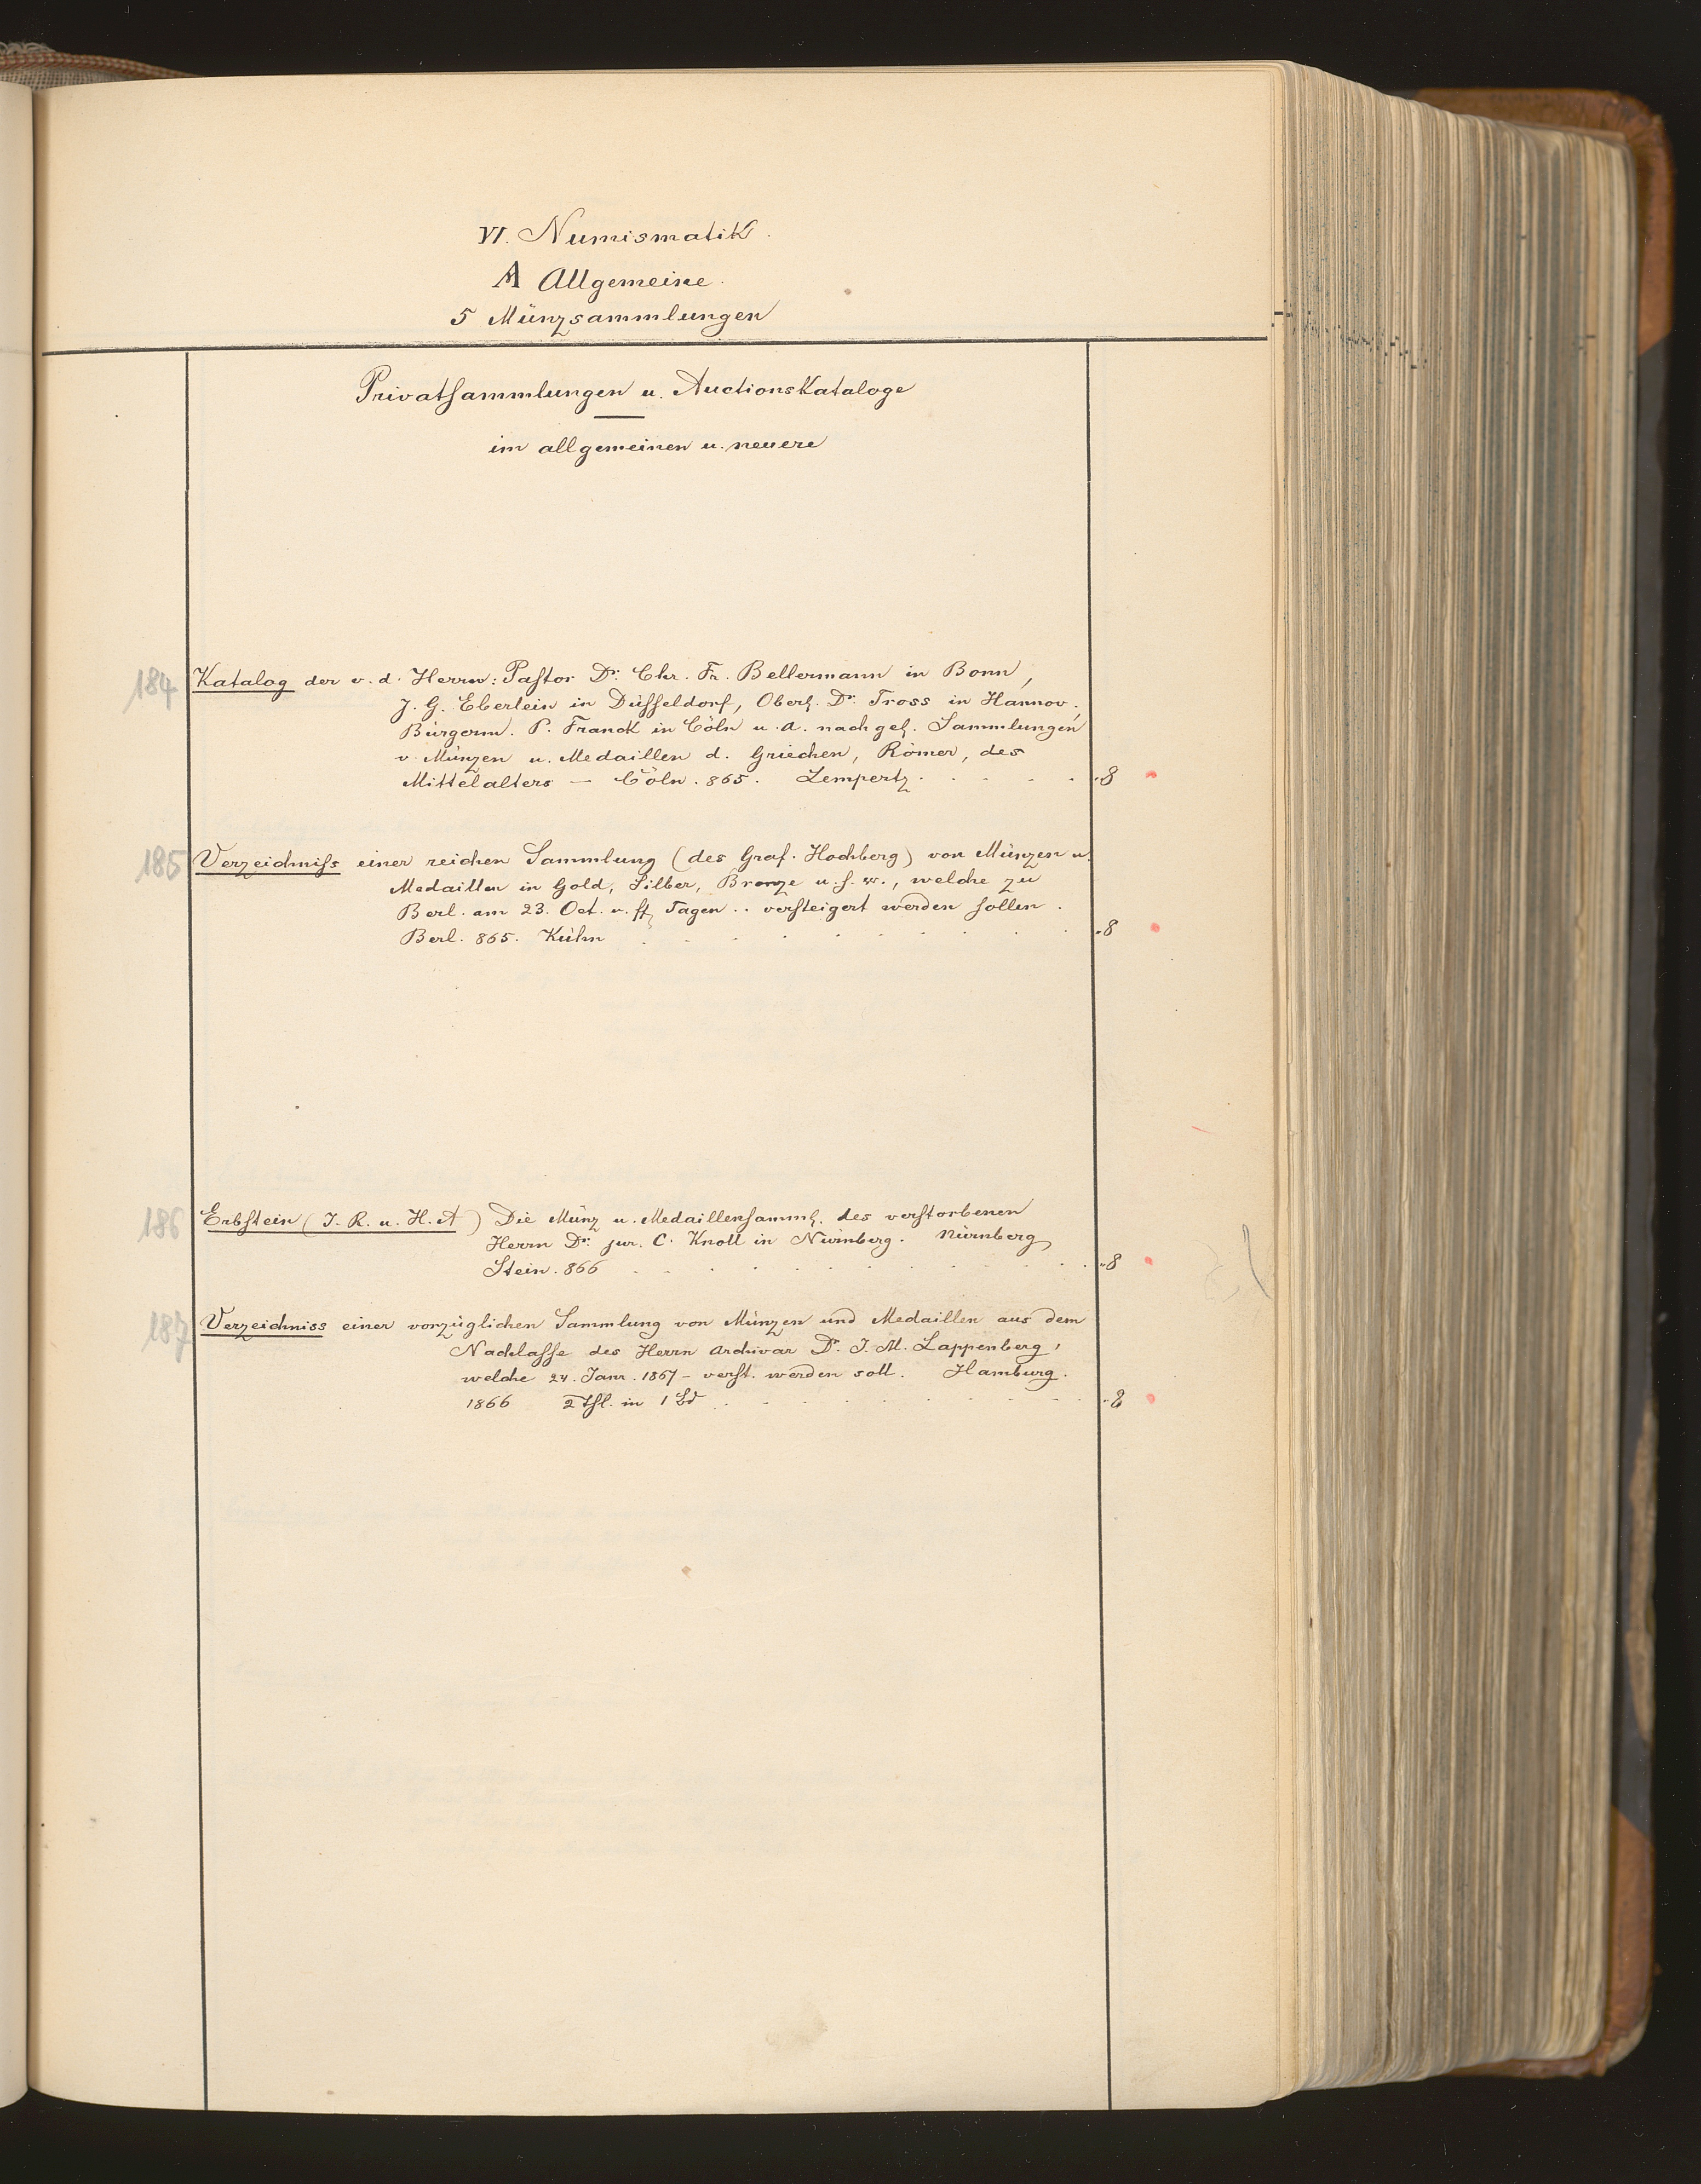 VI. Numismatik.
A Allgemeine.
5 Münzsammlungen
Privatsammlungen u. AuctionsKataloge
im allgemeinen u. neuere
184 Katalog der v. d. Herrn: Pastor Dr. Chr. Fr. Bellermann in Bonn,
J. G. Eberlein in Düsseldorf, Oberl. Dr. Tross in Hannov.,
Bürgerm. P. Franck in Cöln u. A. nachgel. Sammlungen
v. Münzen u. Medaillen d. Griechen, Römer, des
Mittelalters — Cöln. 865. Lempertz. . . . . 8
185 Verzeichniss einer reichen Sammlung (des Graf. Hochberg) von Münzen u.
Medaillen in Gold, Silber, Bronze u. s. w., welche zu
Berl. am 23. Oct. u. ff. Tagen .. versteigert werden sollen.
Berl. 865. Kühn . . . . . . . . . . 8
186 Erbstein (J. R. u. H. A) Die Münz u. Medaillensamml. des verstorbenen
Herrn Dr. jur. C. Knoll in Nürnberg. Nürnberg,
Stein. 866 . . . . . . . . . . . 8
187 Verzeichniss einer vorzüglichen Sammlung von Münzen und Medaillen aus dem
Nachlasse des Herrn Archivar Dr. J. M. Lappenberg,
welche 24. Janr. 1867 – verst. werden soll. Hamburg.
1866 2 Thl. in 1 Bd . . . . . . . . . 8